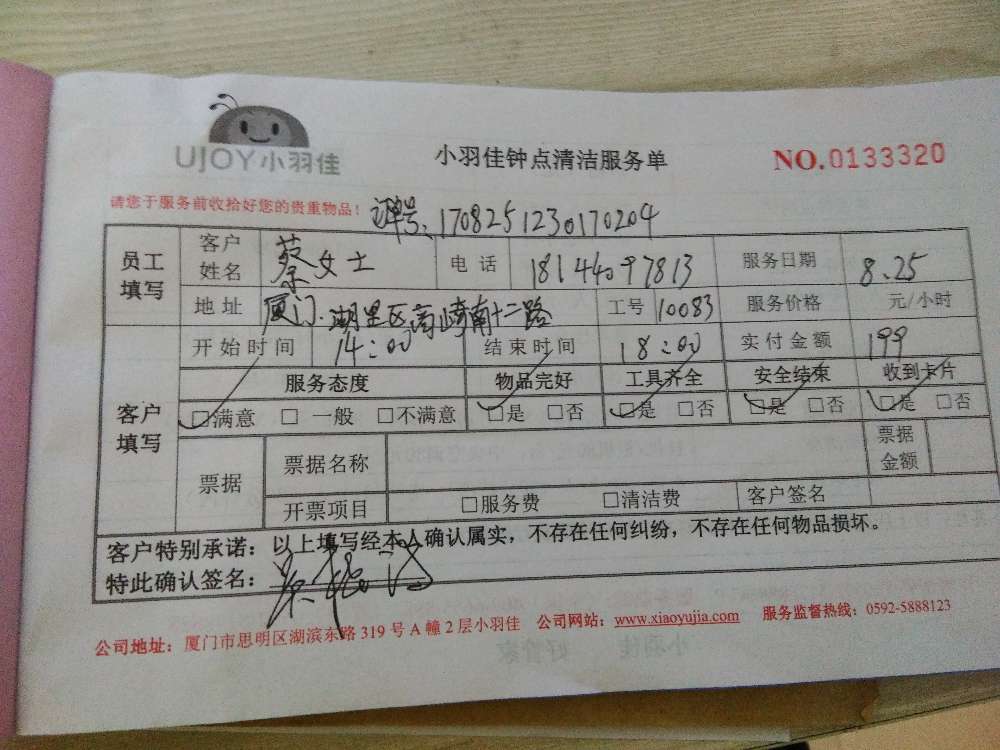 UJOY小羽佳
小羽佳钟点清洁服务单
NO.0133320
请您于服务前收拾好您的贵重物品！
订单号、1708251230170204
员工填写 客户姓名 蔡女士 电话 18144097813 服务日期 8.25
地址 厦门.湖里区高崎南十二路 工号 10083 服务价格 元/小时
客户填写 开始时间 14:00 结束时间 18:00 实付金额 199
服务态度 物品完好 工具齐全 安全结束 收到卡片
□满意 □一般 □不满意 □是 □否 □是 □否 □是 □否 □是 □否
票据 票据名称 票据金额
开票项目 □服务费 □清洁费 客户签名
客户特别承诺：以上填写经本人确认属实，不存在任何纠纷，不存在任何物品损坏。
特此确认签名：
公司地址：厦门市思明区湖滨东路 319 号 A 幢 2 层小羽佳 公司网站：www.xiaoyujia.com 服务监督热线：0592-5888123